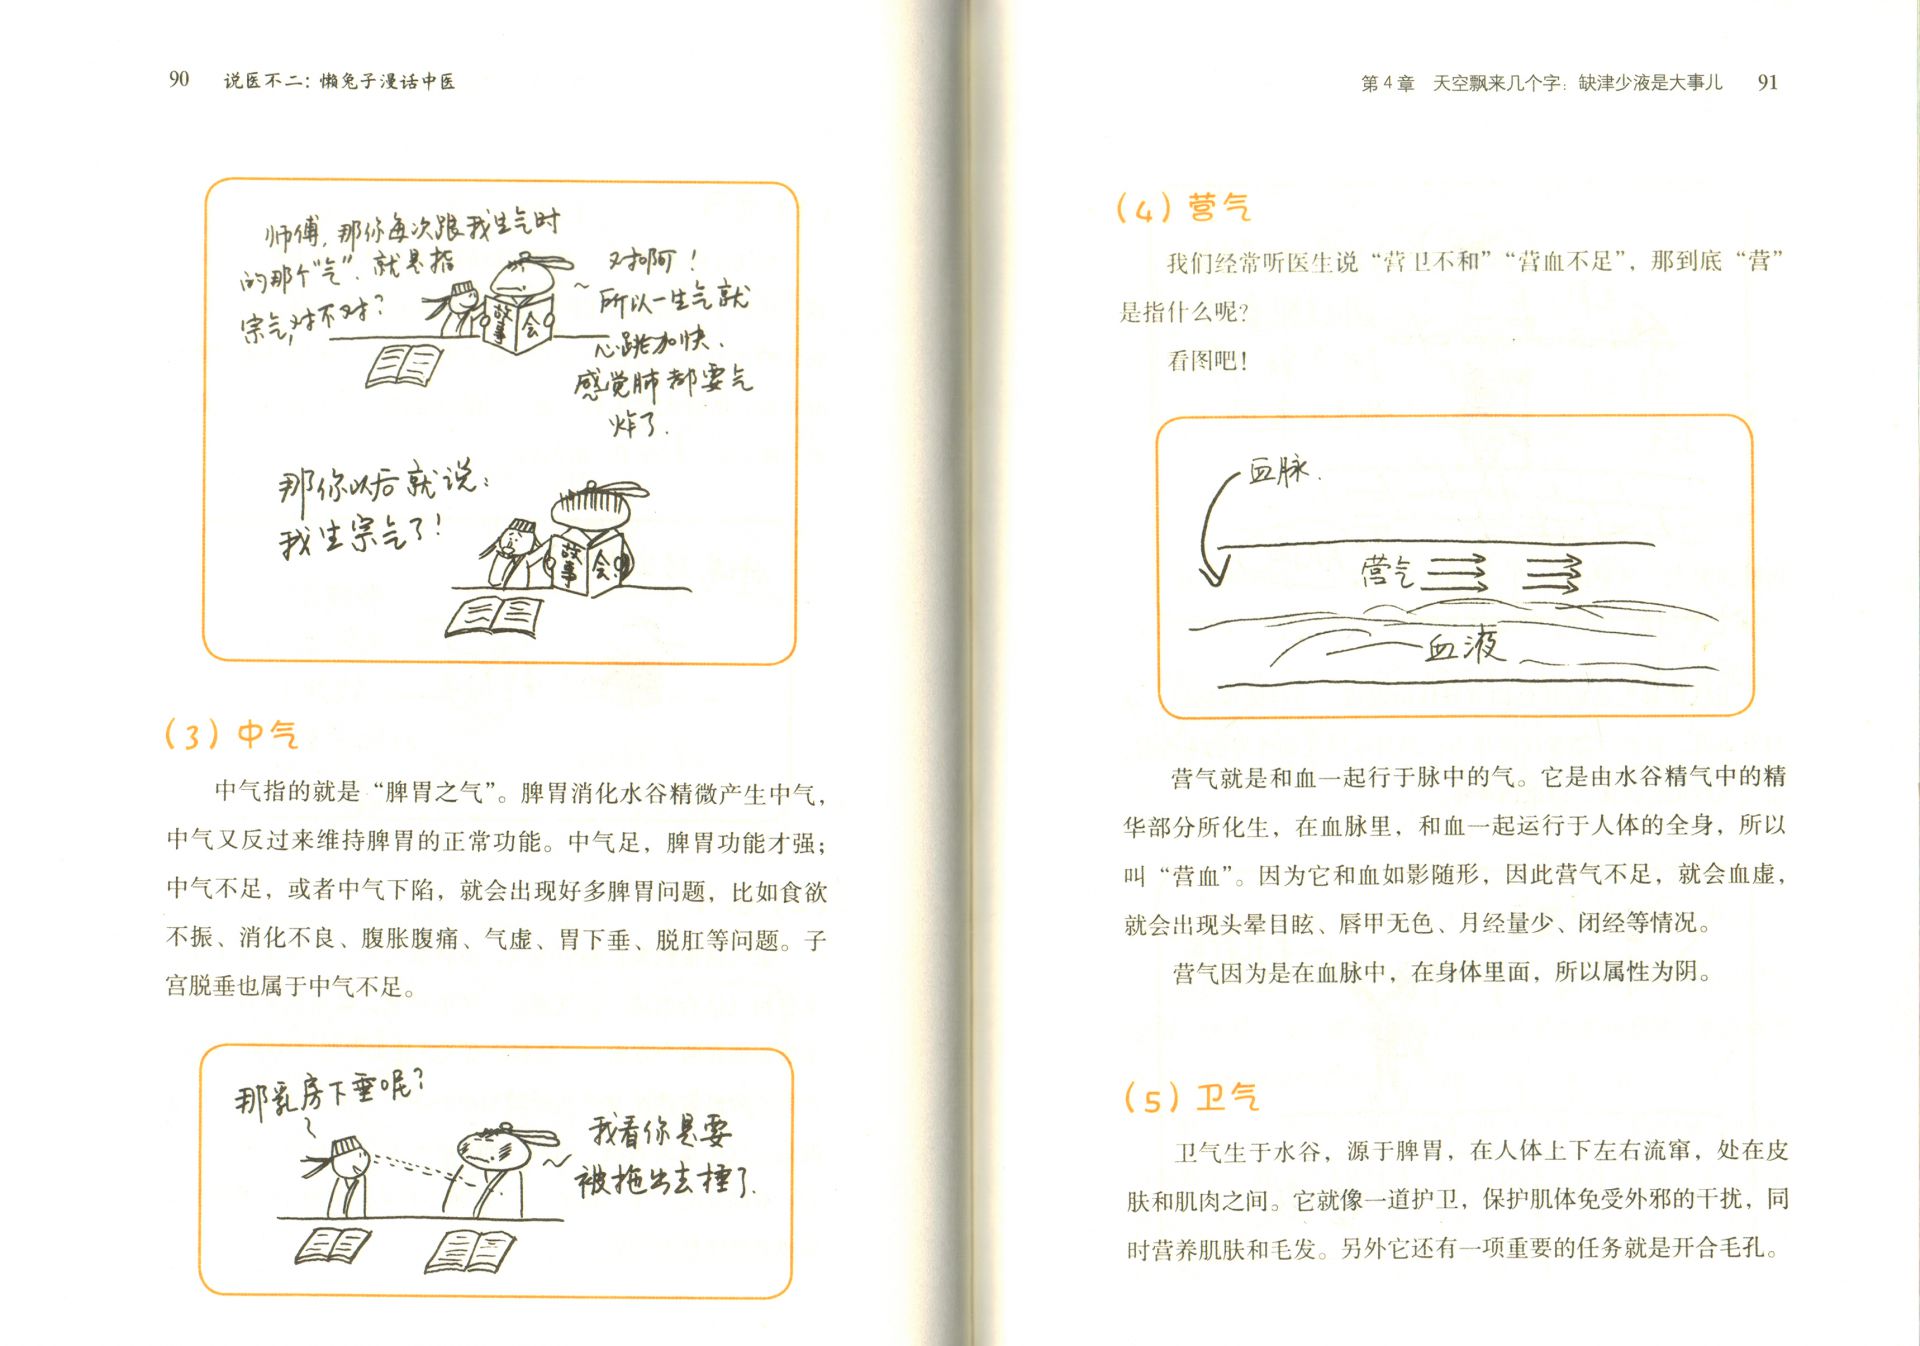 90 说医不二：懒兔子漫话中医
师傅，那你每次跟我生气时
的那个“气”，就是指
宗气，对不对？
对啊！
所以一生气就
心跳加快、
感觉肺都要气
炸了．
故事会
那你以后就说：
我生宗气了！
故事会
（3）中气
中气指的就是“脾胃之气”。脾胃消化水谷精微产生中气，
中气又反过来维持脾胃的正常功能。中气足，脾胃功能才强；
中气不足，或者中气下陷，就会出现好多脾胃问题，比如食欲
不振、消化不良、腹胀腹痛、气虚、胃下垂、脱肛等问题。子
宫脱垂也属于中气不足。
那乳房下垂呢？
我看你是要
被拖出去捶了．
第 4 章 天空飘来几个字：缺津少液是大事儿 91
（4）营气
我们经常听医生说“营卫不和”“营血不足”，那到底“营”
是指什么呢？
看图吧！
血脉．
营气
血液
营气就是和血一起行于脉中的气。它是由水谷精气中的精
华部分所化生，在血脉里，和血一起运行于人体的全身，所以
叫“营血”。因为它和血如影随形，因此营气不足，就会血虚，
就会出现头晕目眩、唇甲无色、月经量少、闭经等情况。
营气因为是在血脉中，在身体里面，所以属性为阴。
（5）卫气
卫气生于水谷，源于脾胃，在人体上下左右流窜，处在皮
肤和肌肉之间。它就像一道护卫，保护肌体免受外邪的干扰，同
时营养肌肤和毛发。另外它还有一项重要的任务就是开合毛孔。